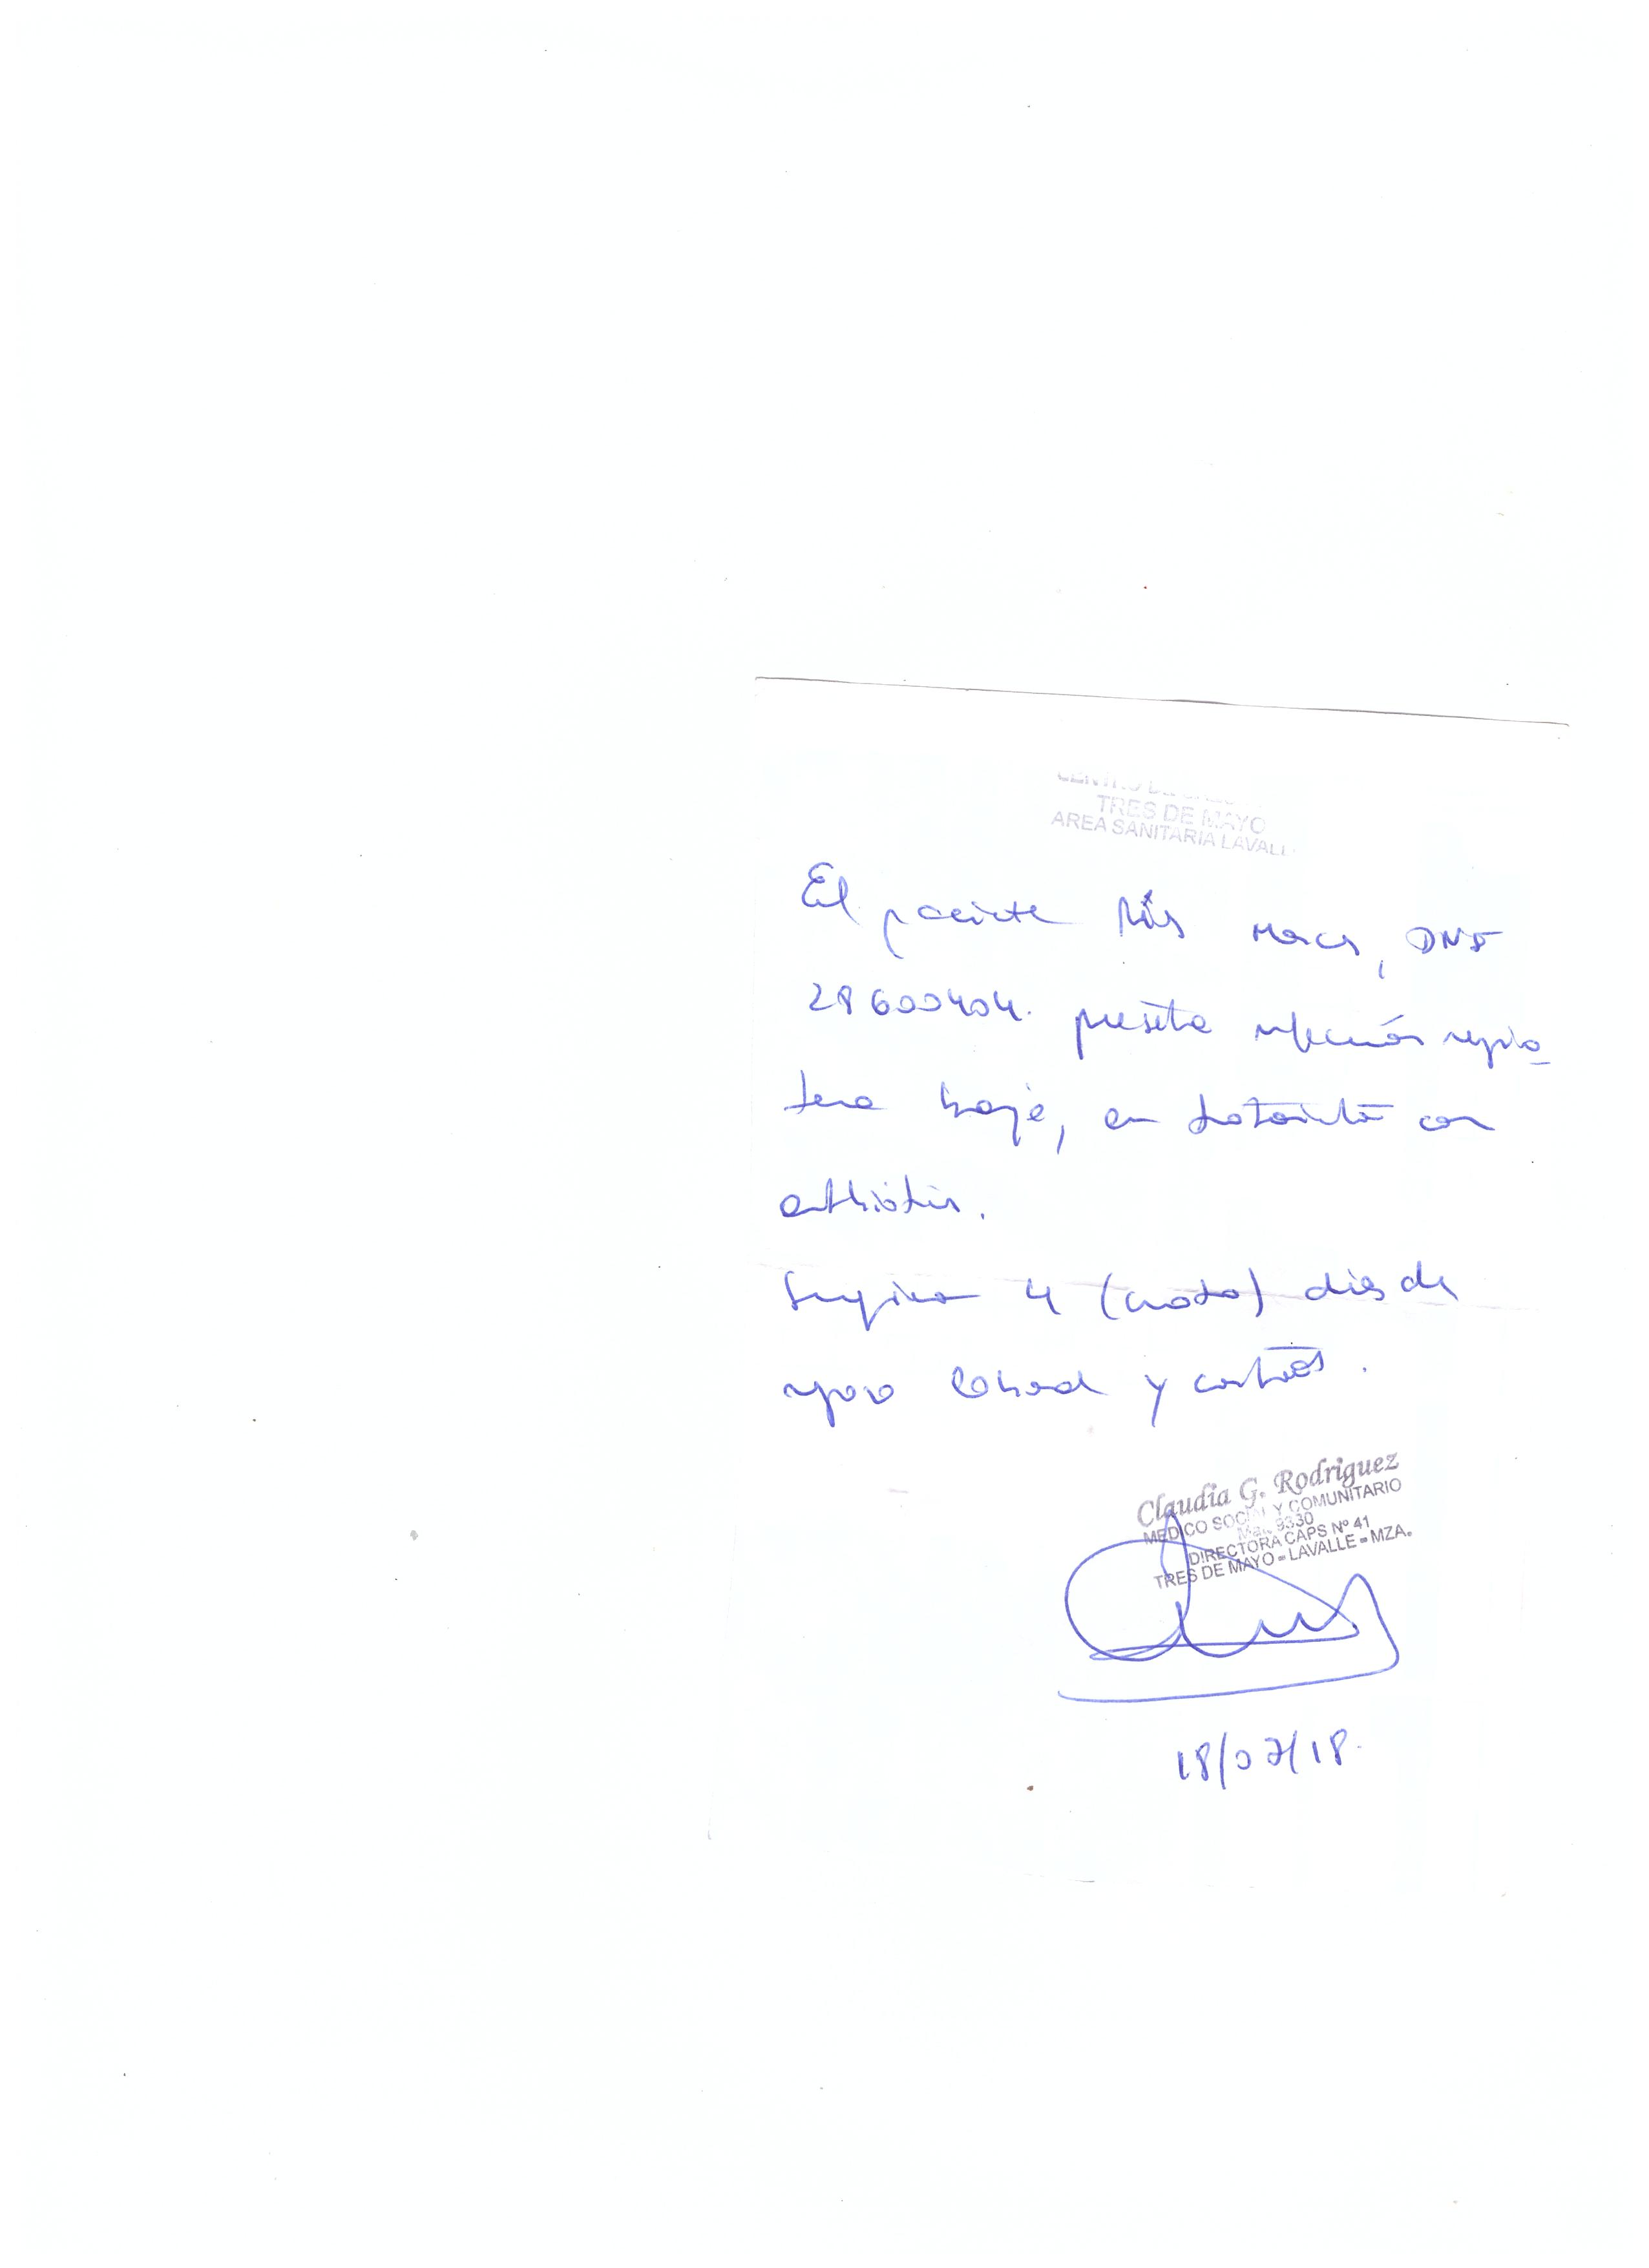 CENTRO DE SALUD
TRES DE MAYO
AREA SANITARIA LAVALL
El paciente DNI
28600404. presenta infección respira_
toria baja, en tratamiento con
antibiótico.
Sugiero 4 (cuatro) días de
reposo laboral y control.
Claudia G. Rodriguez
MEDICO SOCIAL Y COMUNITARIO
Mat. 9330
DIRECTORA CAPS Nº 41
TRES DE MAYO - LAVALLE - MZA.
18/07/18.